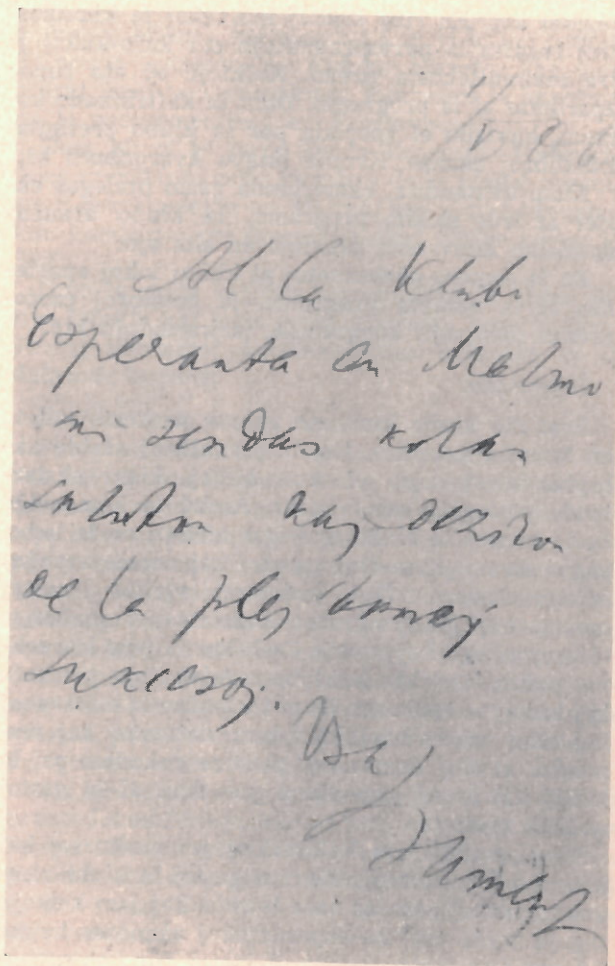 1/V 06
Al la Klubo
Esperanta en Malmö
mi sendas koran
saluton kaj deziron
de la plej bonaj
sukcesoj.
Via
Zamenhof